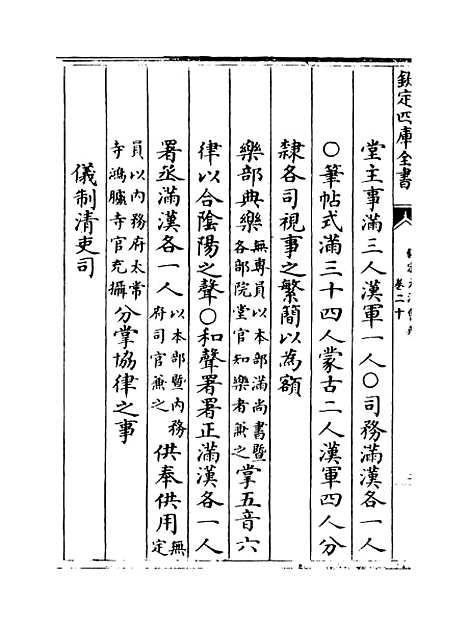 欽定四庫全書
卷二十
堂主事滿三人漢軍一人○司務滿漢各一人
○筆帖式滿三十四人蒙古二人漢軍四人分
隸各司視事之繁簡以為額
樂部典樂無專員以本部滿尚書暨各部院堂官知樂者兼之掌五音六
律以合陰陽之聲○和聲署署正滿漢各一人
署丞滿漢各一人以本部暨內務府司官兼之供奉供用無定
員以內務府太常寺鴻臚寺官充攝分掌協律之事
儀制清吏司